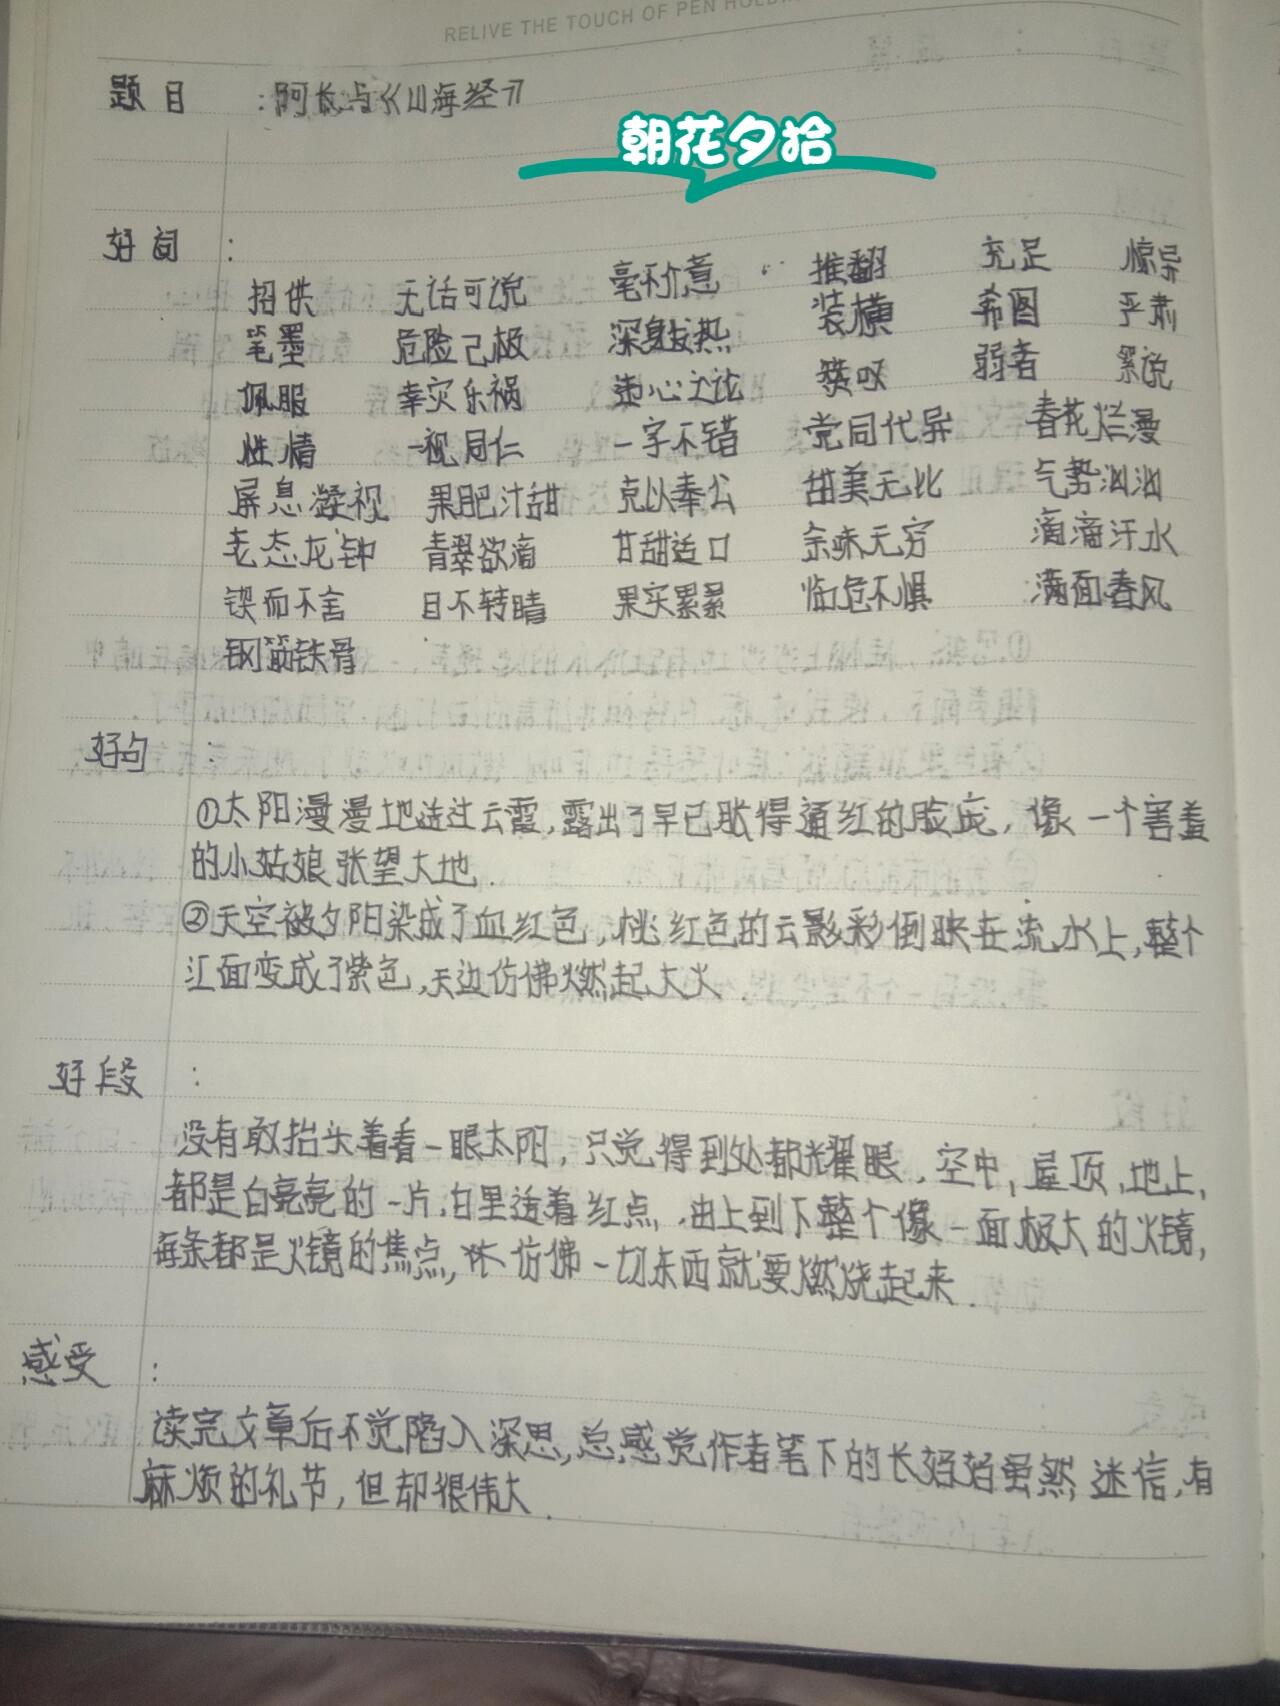 RELIVE THE TOUCH OF PEN HOLDIN
题目 :阿长与《山海经》
朝花夕拾
好词 :
招供 无话可说 毫不介意 推翻 充足 惊异
笔墨 危险已极 深身发热 装横 希图 严肃
佩服 幸灾乐祸 违心之论 赞叹 弱者 絮说
性情 一视同仁 一字不错 党同代异 春花烂漫
屏息凝视 果肥汁甜 克以奉公 甜美无比 气势汹汹
老态龙钟 青翠欲滴 甘甜适口 余味无穷 滴滴汗水
锲而不舍 目不转睛 果实累累 临危不惧 满面春风
钢筋铁骨
好句 :
①太阳漫漫地透过云霞,露出了早已胀得通红的脸庞,像一个害羞
的小姑娘张望大地.
②天空被夕阳染成了血红色,桃红色的云影彩倒映在流水上,整个
江面变成了紫色,天边仿佛燃起大火.
好段 :
没有敢抬头着看一眼太阳,只觉得到处都耀眼,空中,屋顶,地上,
都是白亮亮的一片,白里透着红点,由上到下整个像一面极大的火镜,
每条都是火镜的焦点,仿佛一切东西就要燃烧起来.
感受 :
读完文章后不觉陷入深思,总感觉作者笔下的长妈妈虽然迷信,有
麻烦的礼节,但却很伟大.